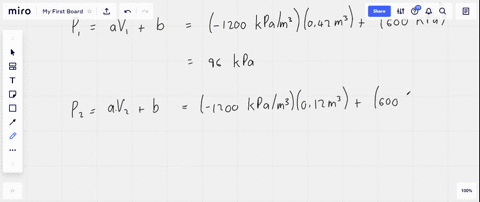 miro My First Board Share
P₁ = aV₁ + b = (-1200 kPa/m³)(0.42 m³) + (600 kPa)
= 96 kPa
P₂ = a.V₂ + b = (-1200 kPa/m³)(0.12 m³) + (600
100%